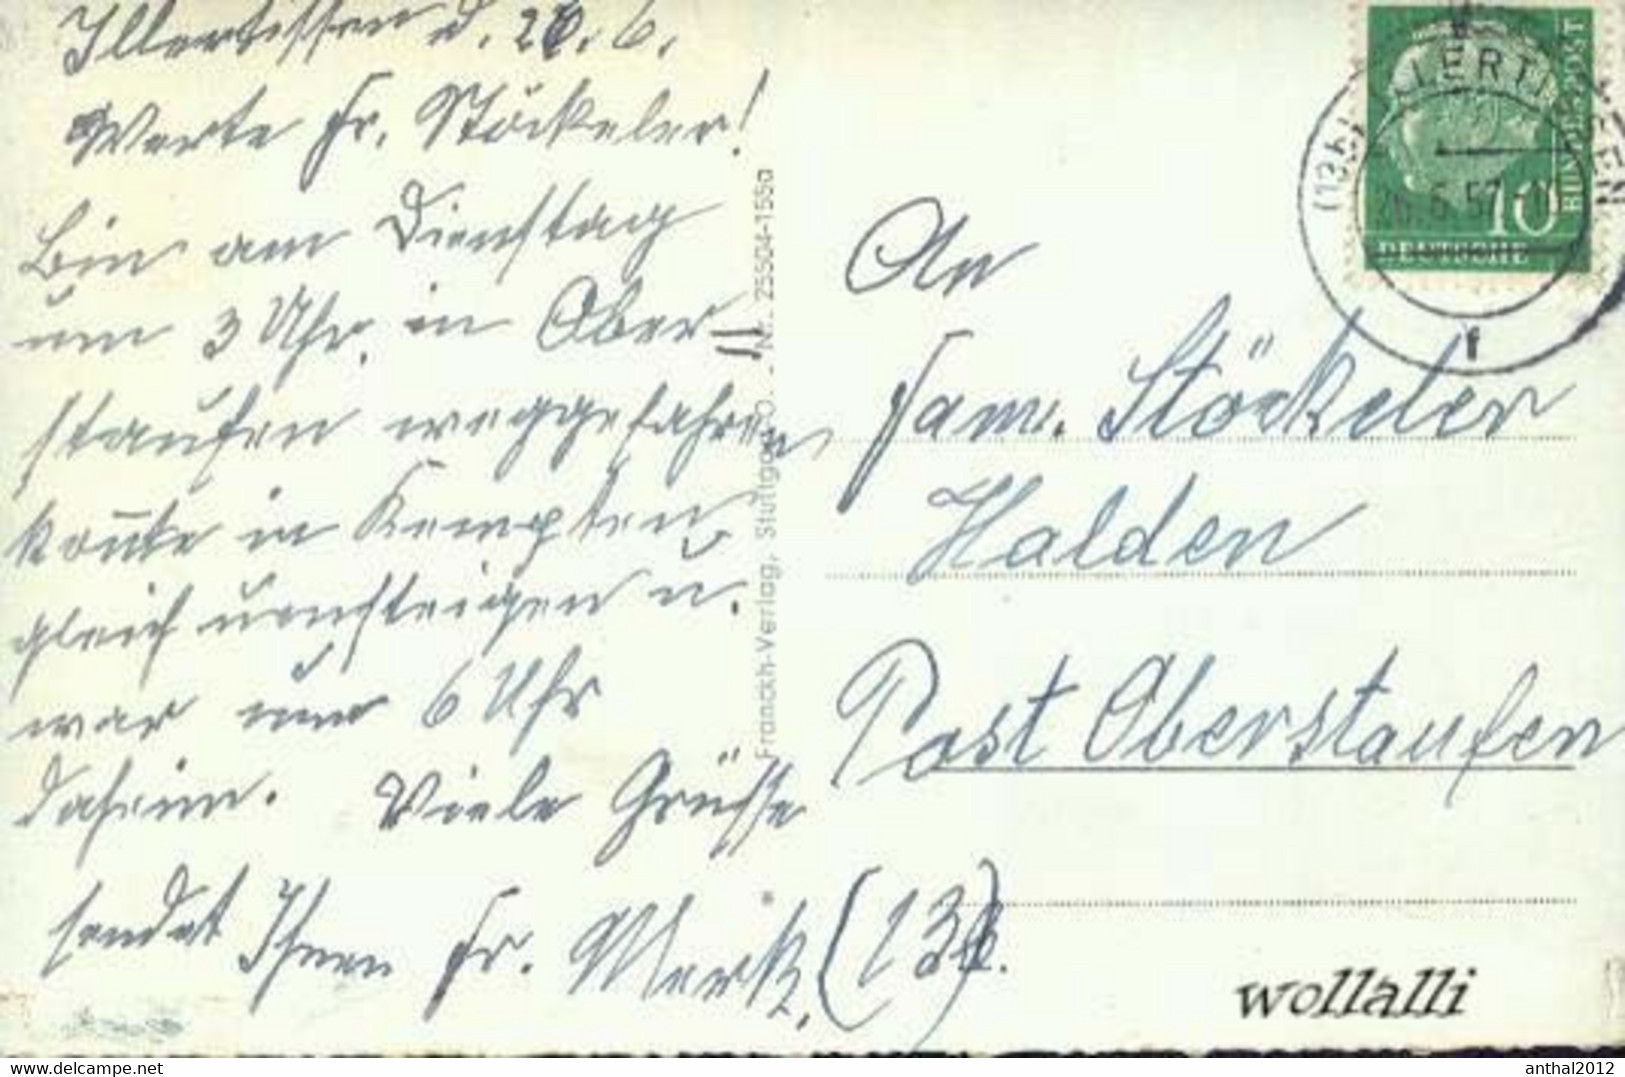 Illertissen d. 26. 6.
Werte Fr. Stöckeler!
Bin am Dienstag
um 3 Uhr, in Ober=
staufen weggefahren,
konnte in Kempten
gleich umsteigen u.
war um 6 Uhr
daheim. Viele Grüsse
sendet Ihnen Fr. Merk,
Franckh-Verlag, Stuttgart-O. - Nr. 25504-155a
(13b) ILLERTISSEN
26.6.57
f
10
DEUTSCHE
BUNDESPOST
An
Fam. Stöckeler
Halden
Post Oberstaufen
(13b).
wollalli
anthal2012